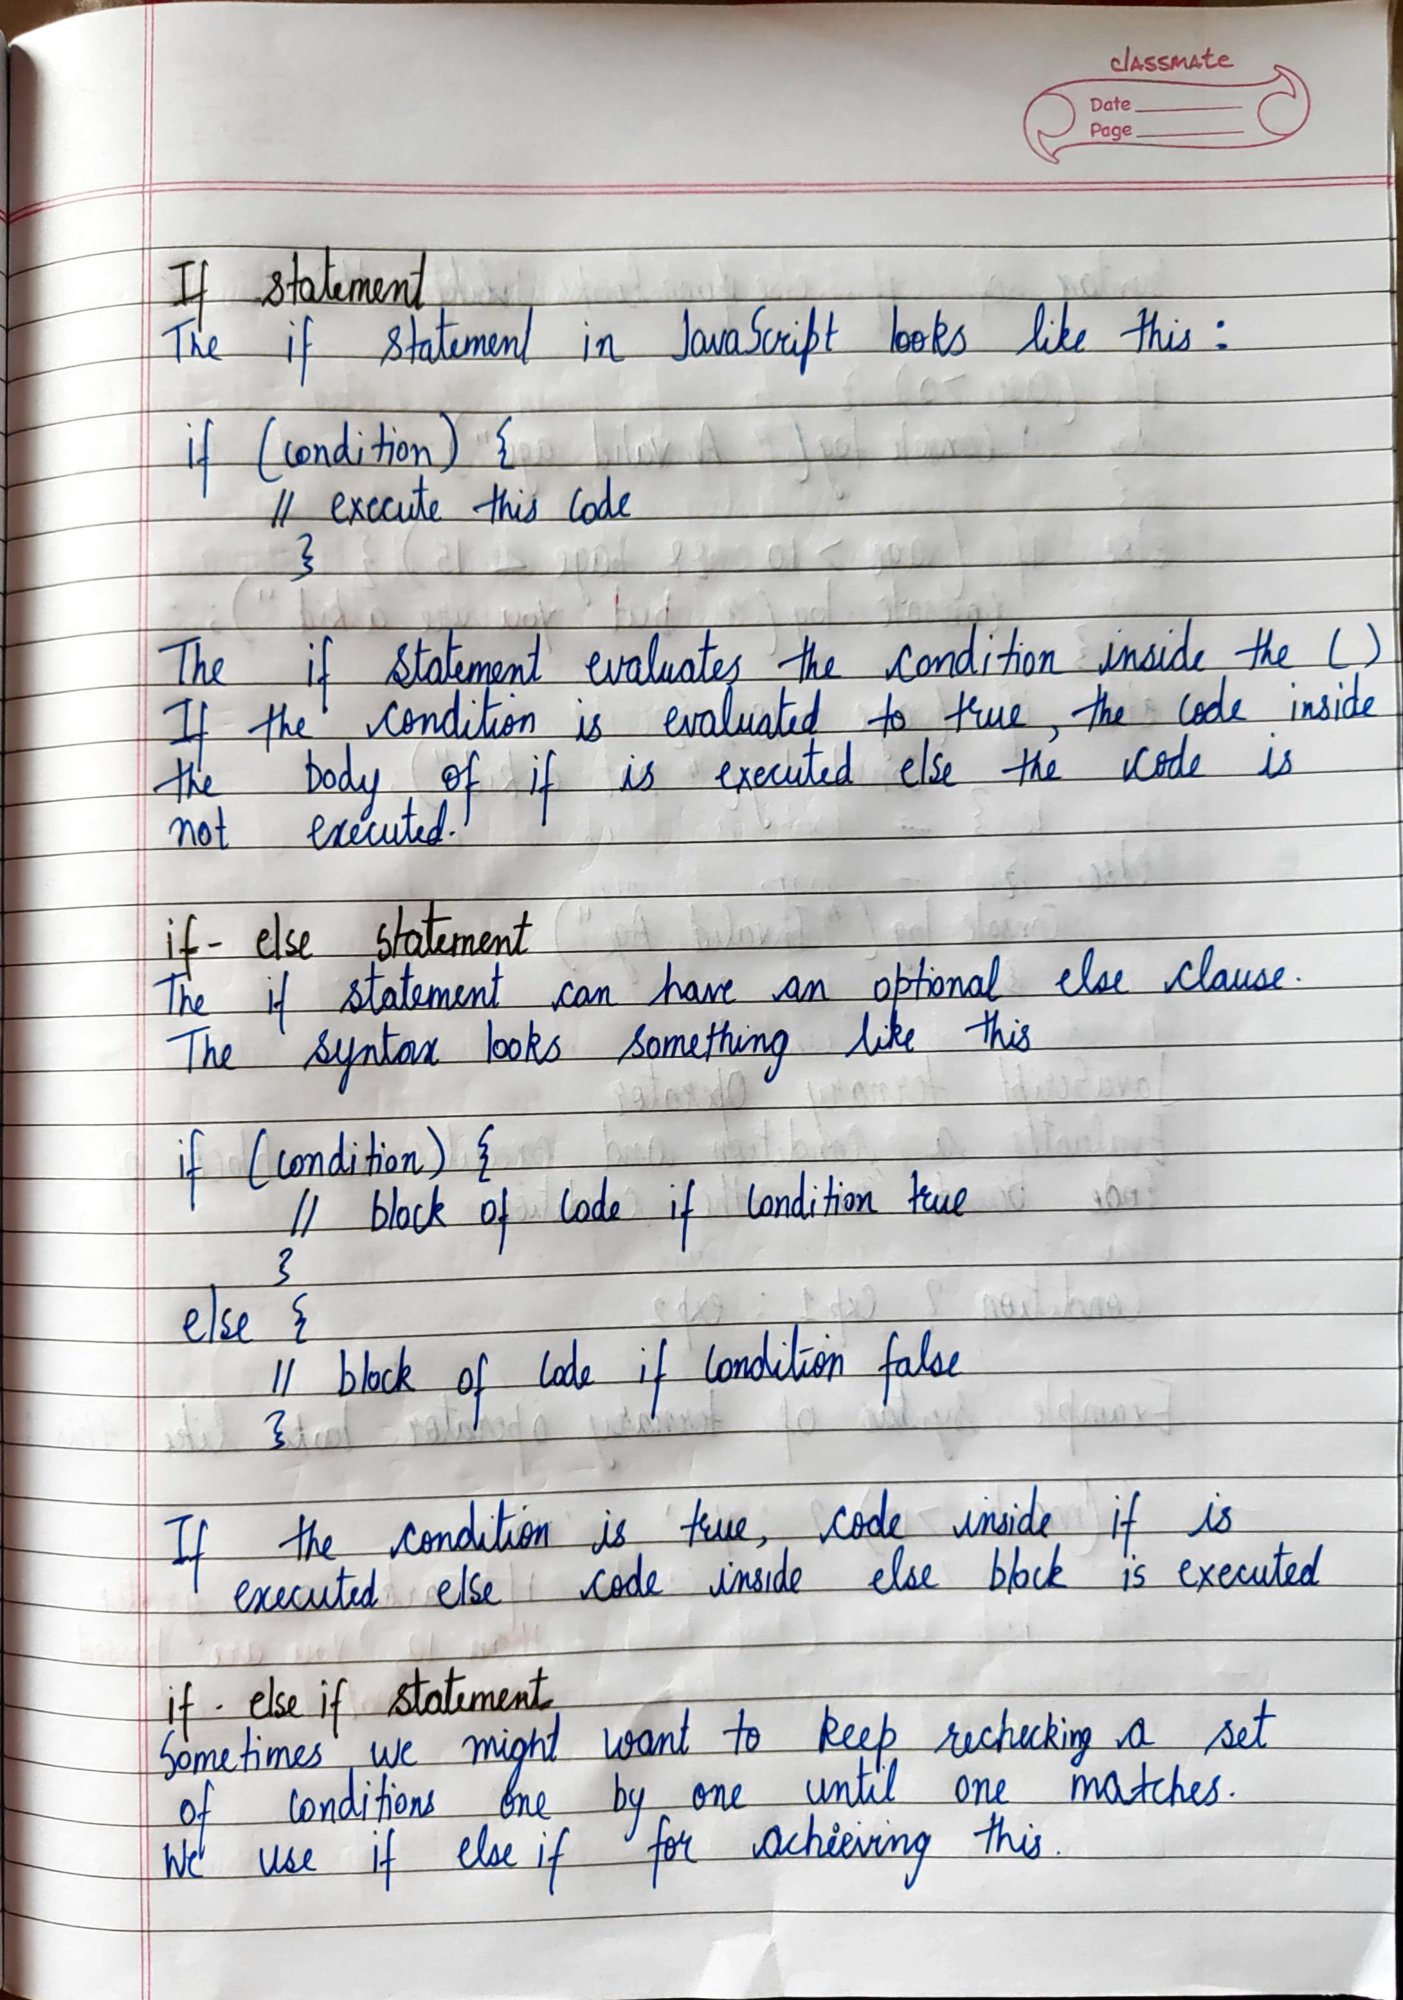 classmate
Date
Page
If statement
The if statement in JavaScript looks like this :
if (condition) {
// execute this code
}
The if statement evaluates the condition inside the ( )
If the condition is evaluated to true, the code inside
the body of if is executed else the code is
not executed.
if - else statement
The if statement can have an optional else clause.
The syntax looks something like this
if (condition) {
// block of code if condition true
}
else {
// block of code if condition false
}
If the condition is true, code inside if is
executed else code inside else block is executed
if - else if statement
Sometimes we might want to keep rechecking a set
of conditions one by one until one matches.
We use if else if for achieving this.